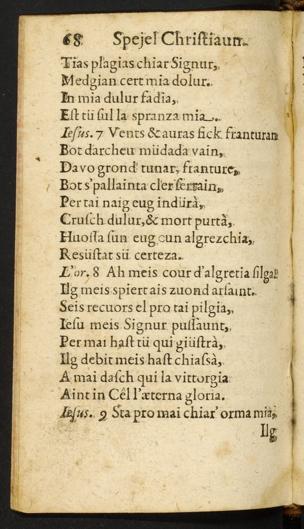 68 Spejel Christiaun.
Tias plagias chiar Signur,
Medgian cert mia dolur.
In mia dulur fadia,
Est tü sül la spranza mia.
Iesus. 7 Vents & auras fick franturan
Bot darcheu müdada vain,
Davo grond' tunar, franture,
Bot s'pallainta cler serrain,
Per tai naig eug indürà,
Crusch dulur, & mort purtà,
Huossa sün eug cun algrezchia,
Resüstat sü certeza.
L'or. 8 Ah meis cour d'algretia silgal'
Ilg meis spiert ais zuond arsaint.
Seis recuors el pro tai pilgia,
Iesu meis Signur pussaunt,
Per mai hast tü qui giüstrà,
Ilg debit meis hast chiassà,
A mai dasch qui la vittorgia
Aint in Cêl l'æterna gloria.
Iesus. 9 Sta pro mai chiar' orma mia,
Ilg